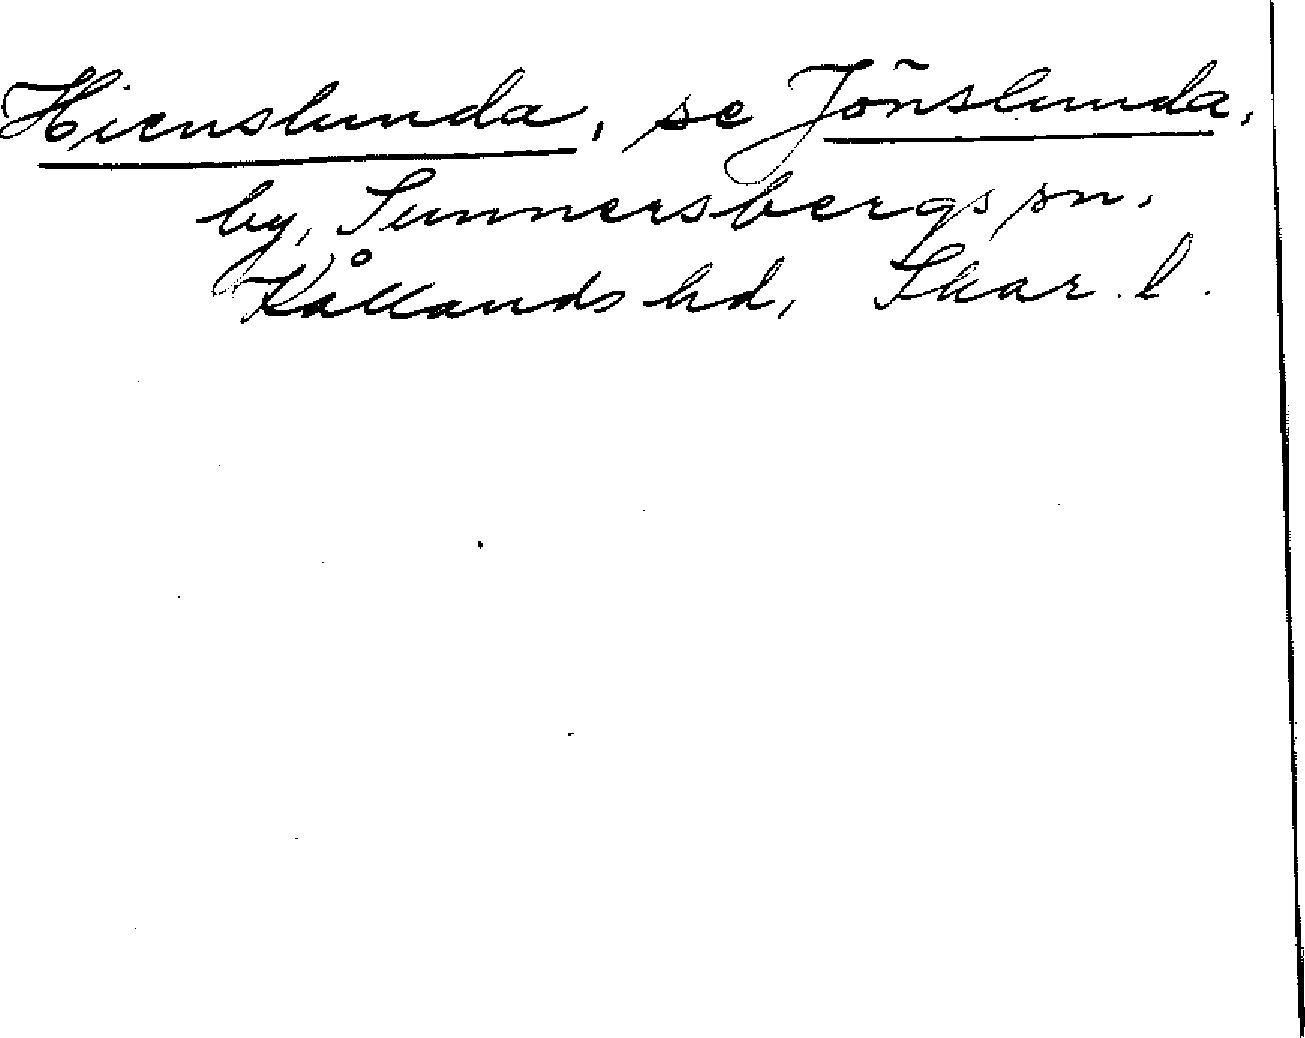 Hienslunda, se Jönslunda,
by, Sunnersbergs sn.
Kållands hd, Skar. l.